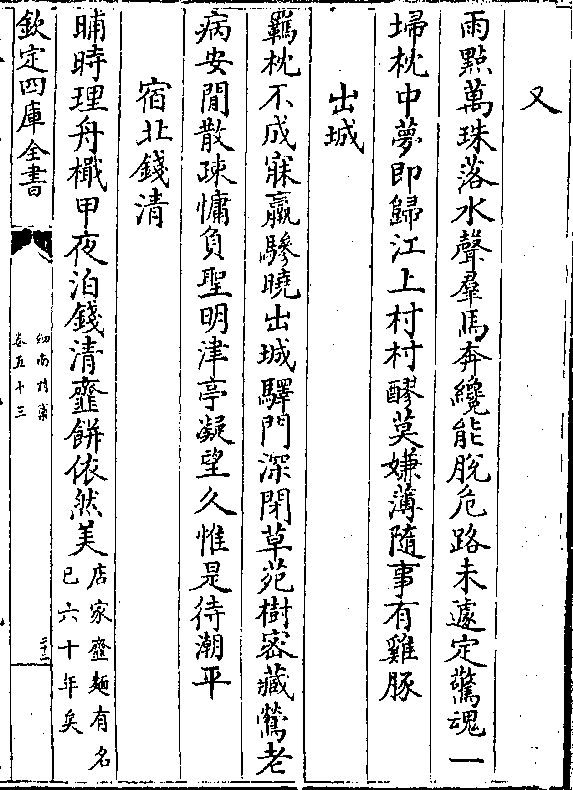 又
雨㸃萬珠落水聲羣馬奔纔能脫危路未遽定驚魂一
埽枕中夢即歸江上村村醪莫嫌薄隨事有雞豚
出城
羈枕不成寐羸驂曉出城驛門深閉草苑樹密藏鶯老
病安閒散疎慵負聖明津亭凝望久惟是待潮平
宿北錢清
晡時理舟檝甲夜泊錢清虀餅依然美店家虀麵有名
已六十年矣
欽定四庫全書
劎南詩藳
卷五十三
二十二